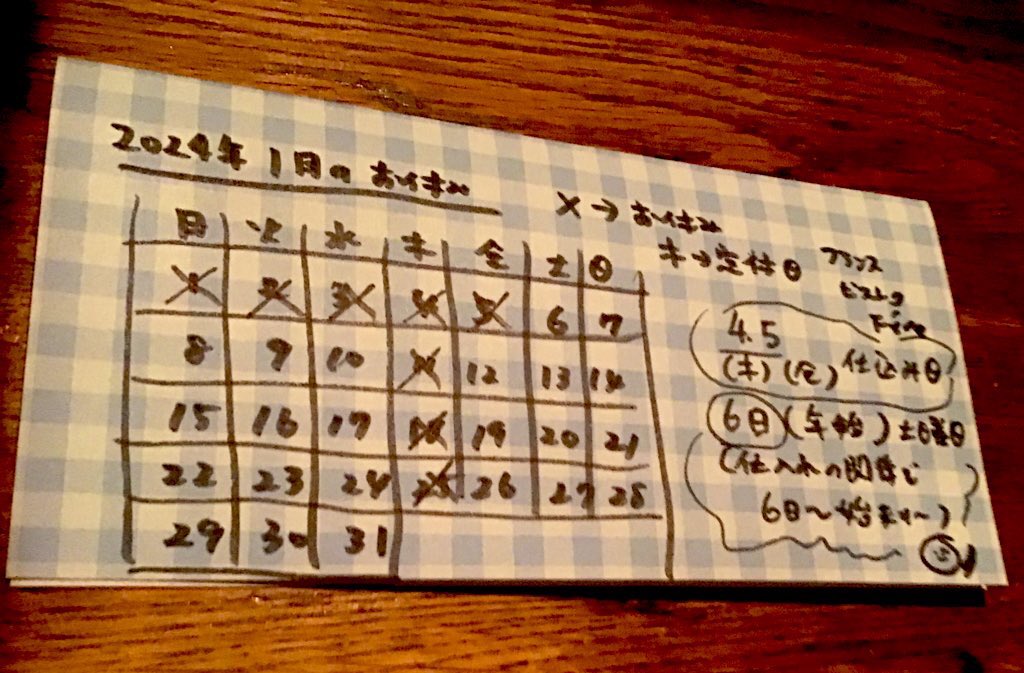 2024年 1月のお休み
X→お休み
木→定休日
フランス
ビストロ
月 火 水 木 金 土 日
1 2 3 4 5 6 7
8 9 10 11 12 13 14
15 16 17 18 19 20 21
22 23 24 25 26 27 28
29 30 31
4.5
(木)(金)仕込み日
6日(年始)土曜日
(仕入れの関係で
6日〜始まり〜)